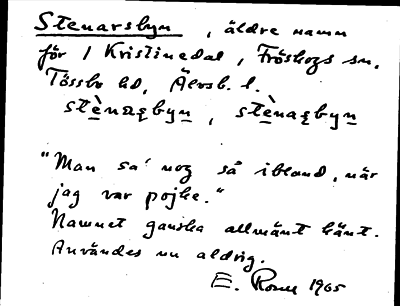 Stenarsbyn, äldre namn
för 1 Kristinedal, Fröskogs sn,
Tössbo hd, Älvsb. l.
stènaꞃbyn, stènaꞃbyn
"Man sa' nog så ibland, när
jag var pojke."
Namnet ganska allmänt känt.
Användes nu aldrig.
E. 1965